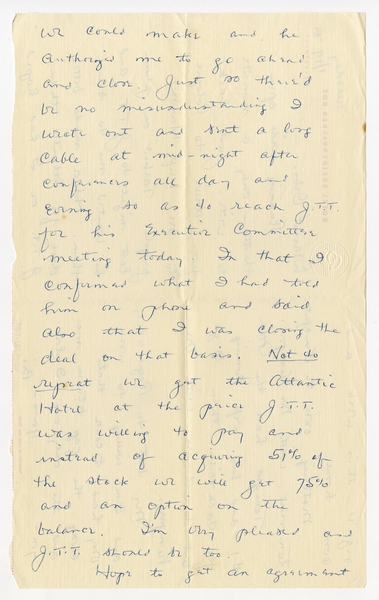 we could make and he
authorized me to go ahead
and close. Just so there'd
be no misunderstanding I
wrote out and sent a long
cable at mid-night after
conferences all day and
evening so as to reach J.T.T.
for his Executive Committee
meeting today. In that I
confirmed what I had told
him on phone and said
also that I was closing the
deal on that basis. Not to
repeat we get the Atlantic
Hotel at the price J.T.T.
was willing to pay and
instead of acquiring 51% of
the stock we will get 75%
and an option on the
balance. I'm very pleased and
J.T.T. should be too.
Hope to get an agreement